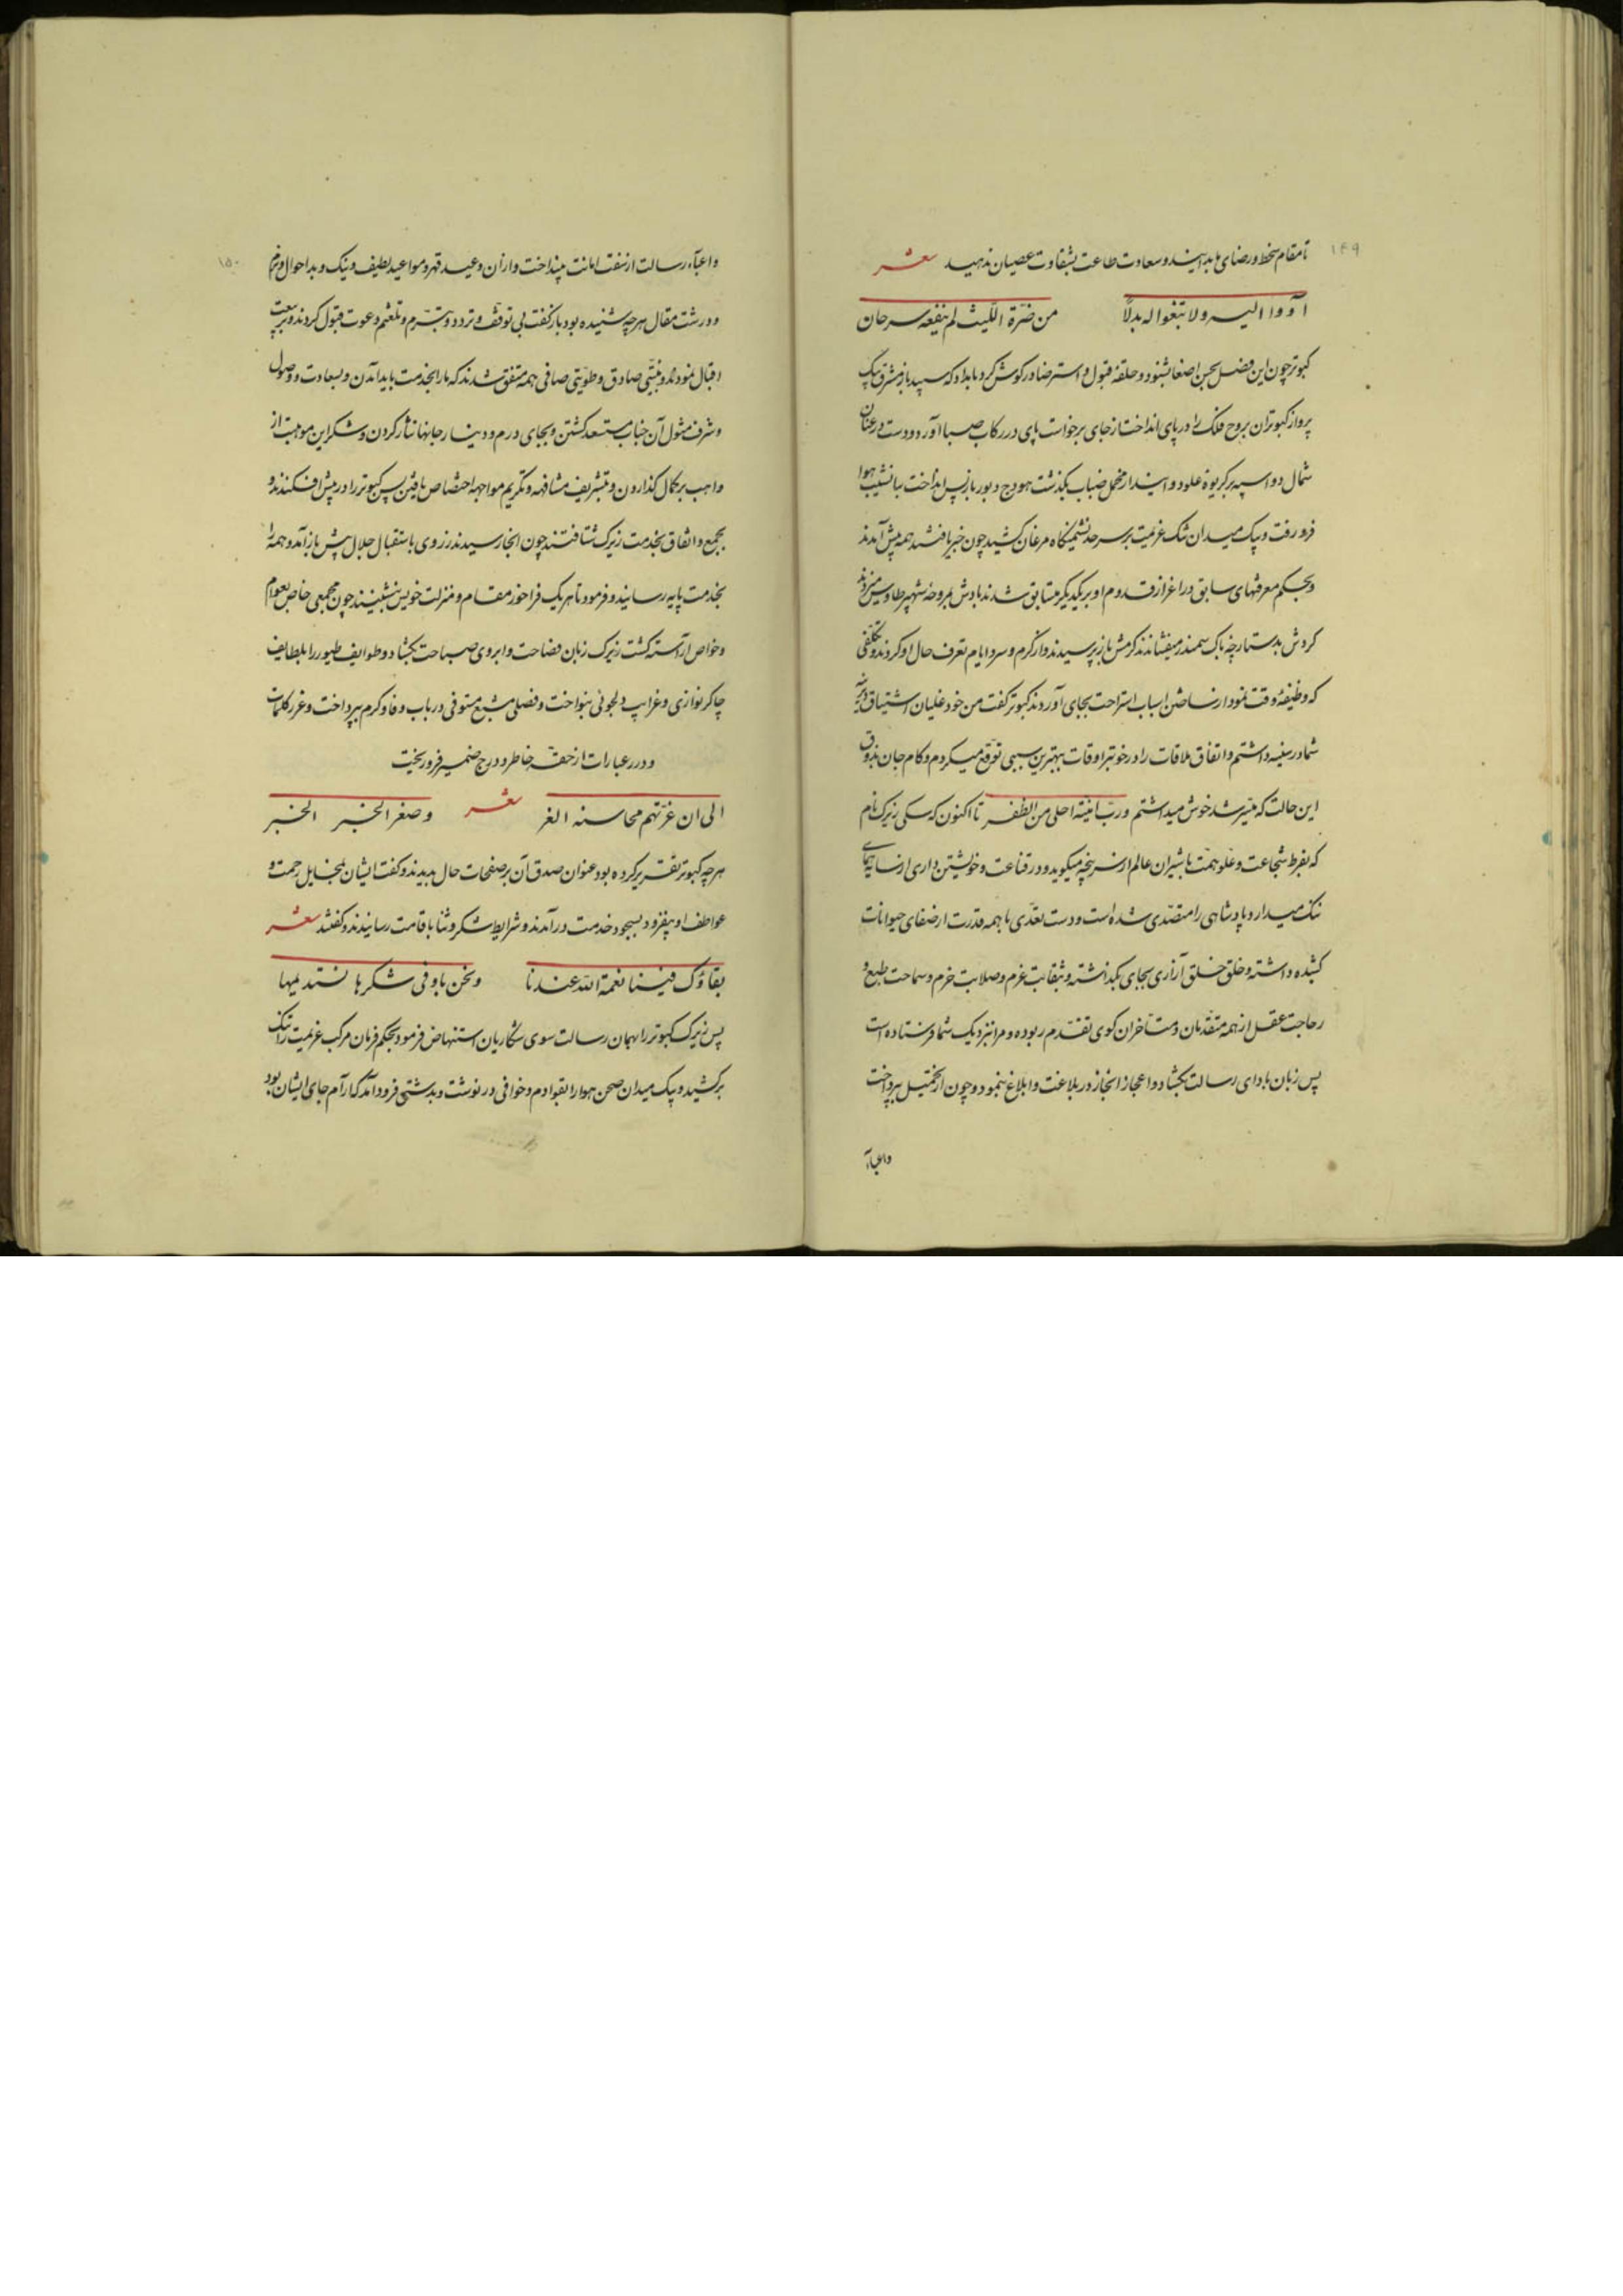 ۱۴۹
تا مقام سخط و رضای ما بدانیند و سعادت طاعت بشقاوت عصیان ندهید شعر
آووا الیه ولا تبغوا له بدلاً من ضرّة اللّیث لم ینفعه سرحان
کبوتر چون این فصل بحسن اصغا بشنود و حلقهٔ قبول و استرضا در کوش کرد بامداد که سپید باز مشرق بیک
پرواز کبوتران بروج فلک را در پای انداخت از جای برخواست پای در رکاب صبا آورد و دست در عنان
شمال دو اسپه بر کریوهٔ علو دوانید از مخمل ضباب بکذشت هودج دبور باز پس انداخت بنشیب هوا
فرو رفت و پیک میدان تنک عزیمت بر سر حد نشیمنکاه مرغان کشید چون خبر یافتند همه پیش آمدند
و بحکم معرفتهای سابق در اعزاز قدوم او بر یکدیکر متسابق شدند بادش بمروحهٔ شهپر طاوس میزدند
کردش بدستارچهٔ پاک سمندر میفشاندند کرمش باز پرسیدند و از کرم و سرد ایام تعرف حال او کردند و تکلفی
که وظیفهٔ وقت نمود از ساختن اسباب استراحت بجای آوردند کبوتر کفت من خود غلیان اشتیاق دیرینهٔ
شما در سینه داشتم و اتفاق ملاقات را در خوبتر اوقات ببهترین سببی توقع میکردم و کام جان بذوق
این حالت که میسّر شد خوش میداشتم و ربّ امنیّة احلی من الظفر تا اکنون که سکی زیرک نام
که بفرط شجاعت و علو همّت با شیران عالم از سر پنجه میکوید و در قناعت و خویشتن داری از سایهٔ همای
ننک میدارد پادشاهی را متصدّی شده است و دست تعدّی با همه قدرت از ضعفای حیوانات
کشیده داشته و خلق خلق آزاری بجای بکذاشته و بثقابت عزم و صلابت حزم و سماحت طبع و
رجاحت عقل از همه متقدّمان و متأخران کوی تقدّم ربوده و مرا بنزدیک شما فرستاده است
پس زبان بادای رسالت بکشاد و اعجاز انجاز در بلاغت و ابلاغ بنمود و چون از تحمّل بپرداخت
واعباء
۱۵۰
واعباء رسالت از عنفت امانت بینداخت و از آن وعید قهر و مواعید لطیف و نیک و بد احوال و نرم
و درشت مقال هر چه شنیده بود باز کفت بی توقف و تردد و تبرّم و تلعثم دعوت قبول کردند و بر بیعت
اقبال نمودند و بنیّتی صادق و طویّتی صافی همه متفق شدند که ما را بخدمت باید آمدن و بسعادت وصول
و شرف مثول آن جناب مستسعد کشتن و بجای درم و دینار جانها نثار کردن و شکر این موهبت از
واهب بر کمال کذاردن و بتشریف مشافهه و تکریم مواجهه اختصاص یافتن پس کبوتر را در پیش افکندند و
بجمع و اتفاق بخدمت زیرک شتافتند چون آنجا رسیدند زروی باستقبال حلال پیش باز آمد و همه را
بخدمت پایه رسانید و فرمود تا هر یک فراخور مقام و منزلت خویش بنشینند چون مجمعی خاص بعوام
و خواص آراسته کشت زیرک زبان فصاحت و ابروی صباحت بکشاد و طوایف طیور را بلطایف
چاکرنوازی و غرایب دلجوئی بنواخت و فصلی مشبع مستوفی در باب وفا و کرم بپرداخت و غرر کلمات
و درر عبارات از حقّهٔ خاطر و درج ضمیر فرو ریخت
الی ان غرّتهم محاسنه الغر شعر وصغر الخبر الخبر
هر چه کبوتر تقریر کرده بود عنوان صدق آن بر صفحات حال بدیدند و کفت ایشان بمخایل رحمت و
عواطف او بیفزود بسجود خدمت درآمدند و شرایط شکر و ثنا باقامت رسانیدند و کفتند شعر
بقاؤک فینا نعمة الله عندنا ونحن باوفی شکرها نستدیمها
پس زیرک کبوتر را بهمان رسالت سوی شکاریان استنهاض فرمود بحکم فرمان مرکب عزیمت را تنک
برکشید و پیک میدان صحن هوا را بقوادم و خوافی درنوشت و بدشتی فرود آمد که آرام جای ایشان بود